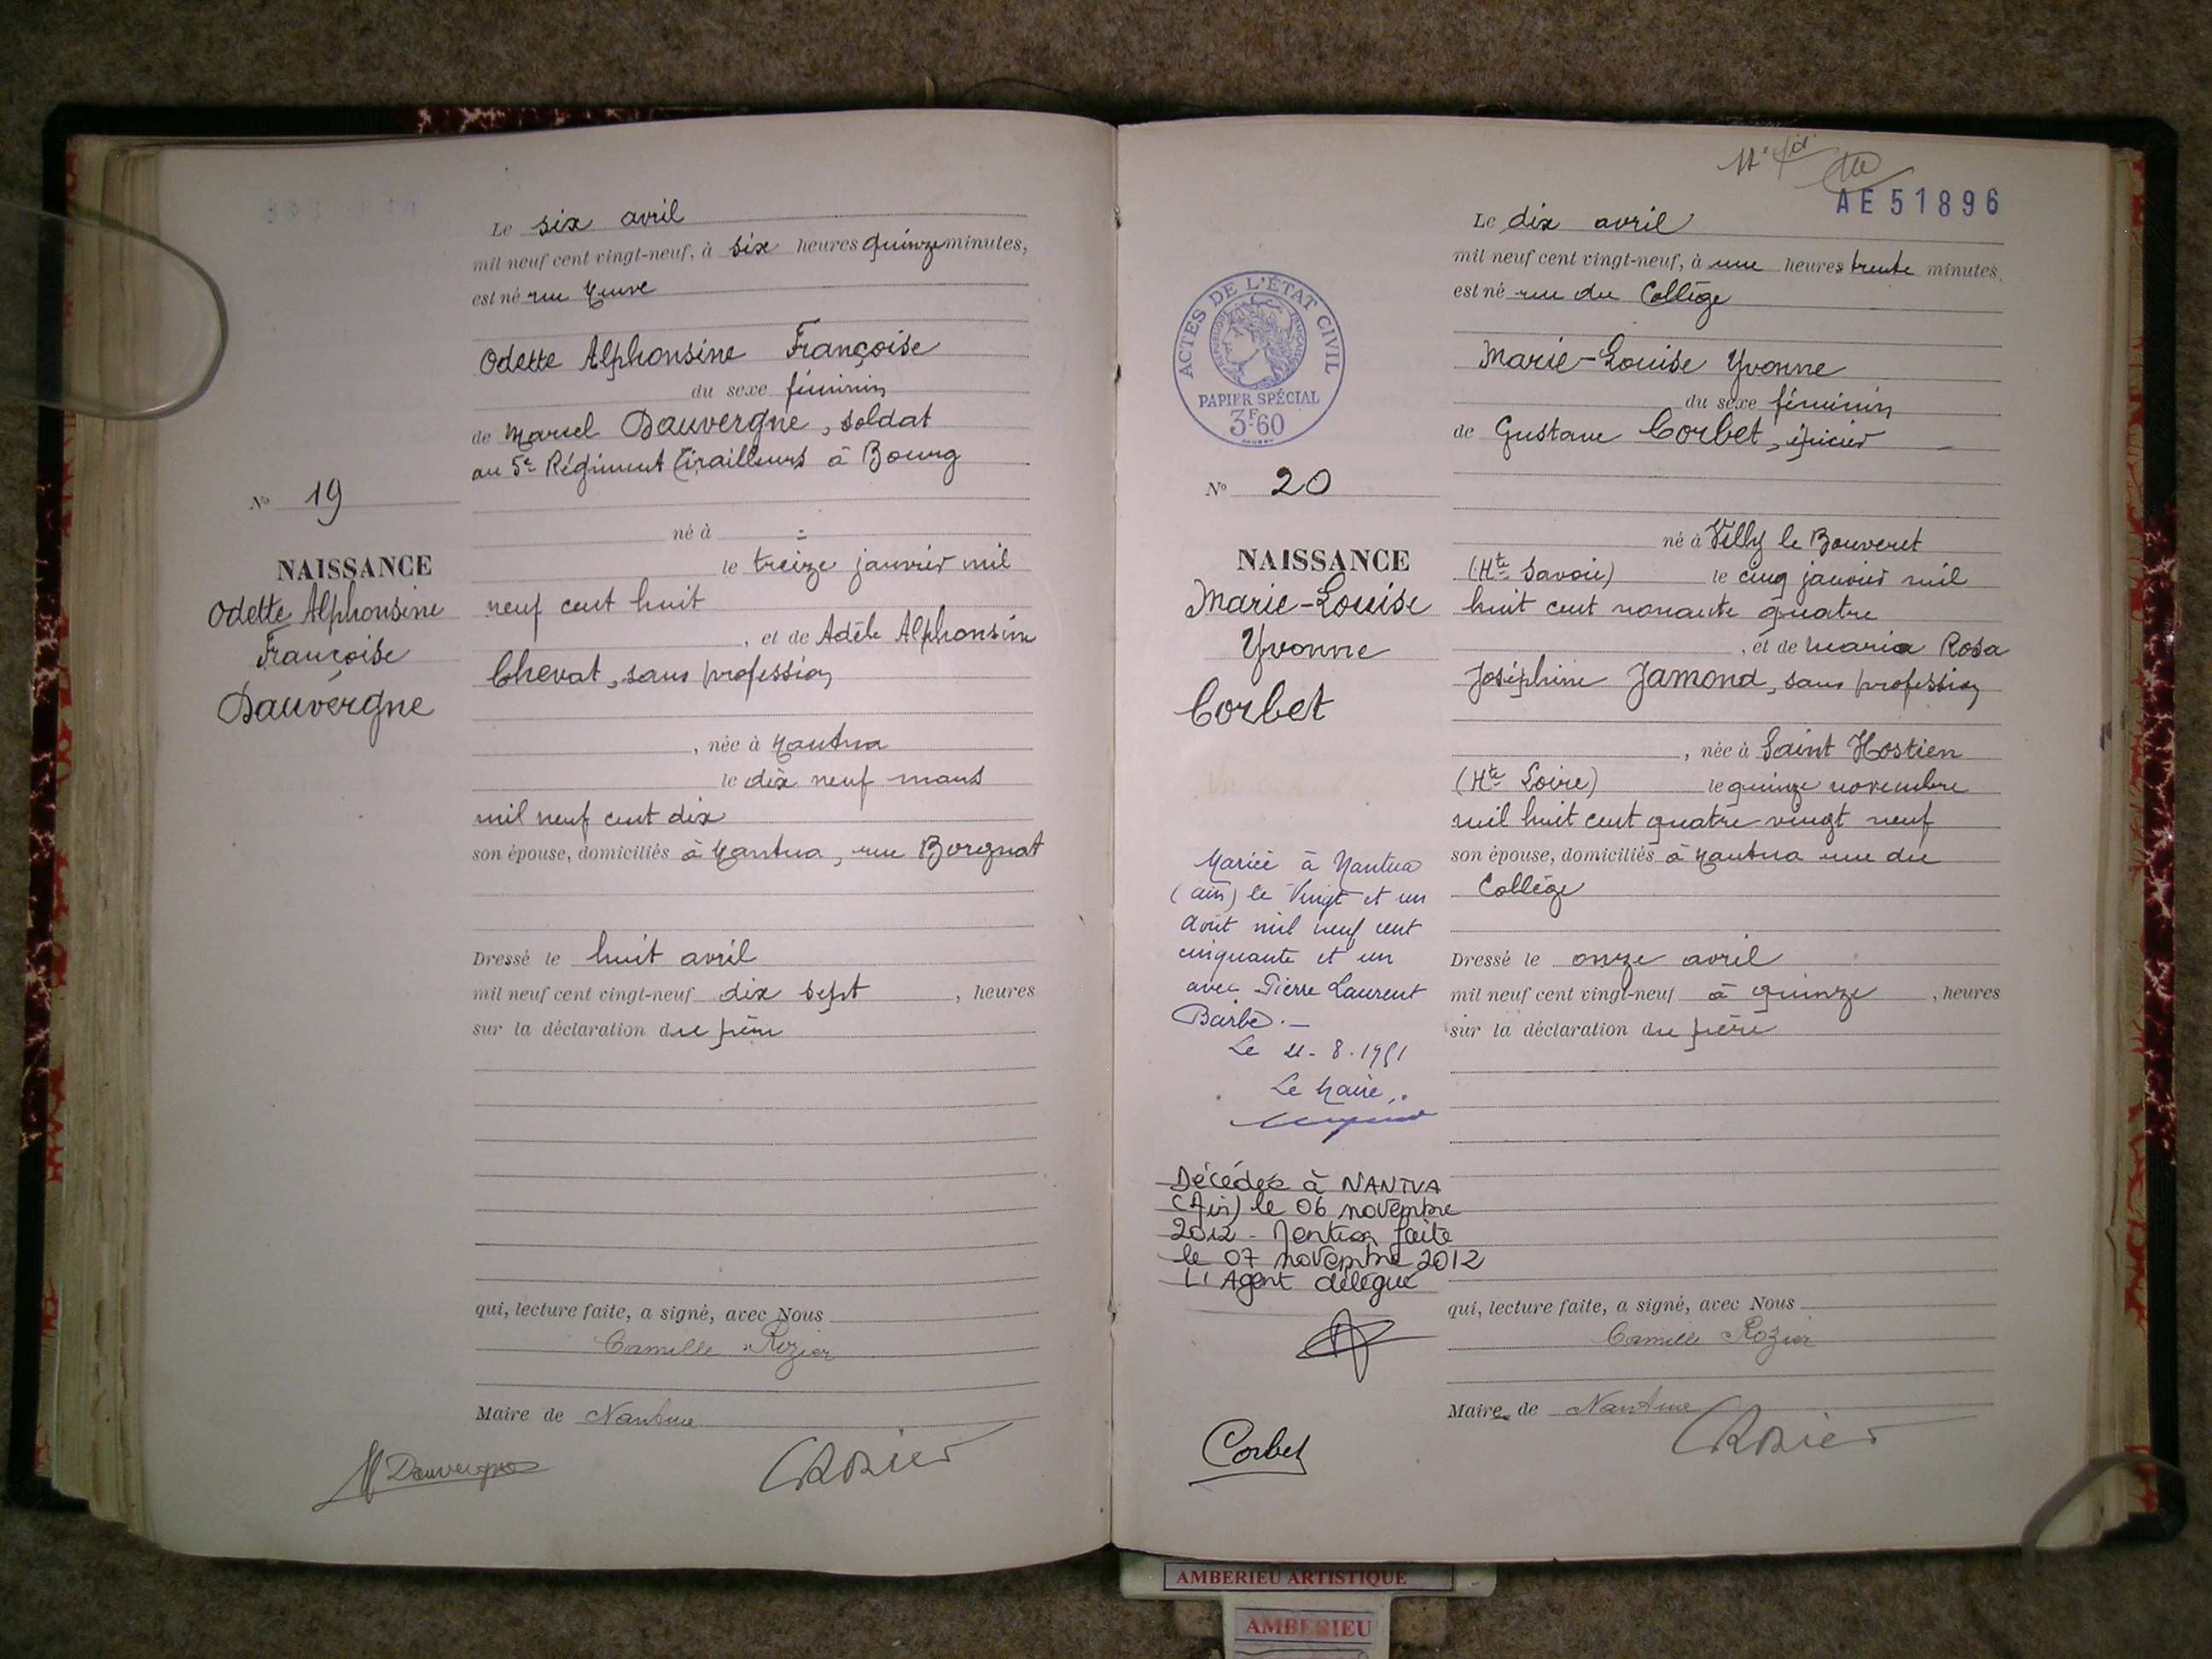 Le six avril
mil neuf cent vingt-neuf, à six heures quinze minutes,
est né rue Neuve
Odette Alphonsine Françoise
du sexe féminin
de Marcel Dauvergne, soldat
au 5e Régiment Tirailleurs à Bourg
No 19
né à =
NAISSANCE
le treize janvier mil
Odette Alphonsine
neuf cent huit
Françoise
, et de Adèle Alphonsine
Dauvergne
Chevat, sans profession
, née à Nantua
le dix neuf mars
mil neuf cent dix
son épouse, domiciliés à Nantua, rue Borgnat
Dressé le huit avril
mil neuf cent vingt-neuf dix sept , heures
sur la déclaration du père
qui, lecture faite, a signé, avec Nous
Camille Rozier
Maire de Nantua
M Dauvergne
CRozier
AE 51896
Le dix avril
mil neuf cent vingt-neuf, à une heures trente minutes.
est né rue du Collège
ACTES DE L'ÉTAT CIVIL
RÉPUBLIQUE FRANÇAISE
PAPIER SPÉCIAL
3F60
Marie-Louise Yvonne
du sexe féminin
de Gustave Corbet, épicier
No 20
né à Villy le Bouveret
NAISSANCE
(Hte Savoie) le cinq janvier mil
Marie-Louise
huit cent nonante quatre
Yvonne
, et de Maria Rosa
Corbet
Joséphine Jamond, sans profession
, née à Saint Hostien
(Hte Loire) le quinze novembre
mil huit cent quatre vingt neuf
son épouse, domiciliés à Nantua rue du
Collège
Mariée à Nantua
(ain) le Vingt et un
Août mil neuf cent
cinquante et un
avec Pierre Laurent
Barbe.-
Le 21-8-1951
Le Maire,
Dressé le onze avril
mil neuf cent vingt-neuf à quinze , heures
sur la déclaration du père
Décédée à NANTUA
(Ain) le 06 novembre
2012 - Mention faite
le 07 novembre 2012
L'Agent délégué
qui, lecture faite, a signé, avec Nous
Camille Rozier
Maire de Nantua
Corbet
CRozier
AMBERIEU ARTISTIQUE
AMBERIEU